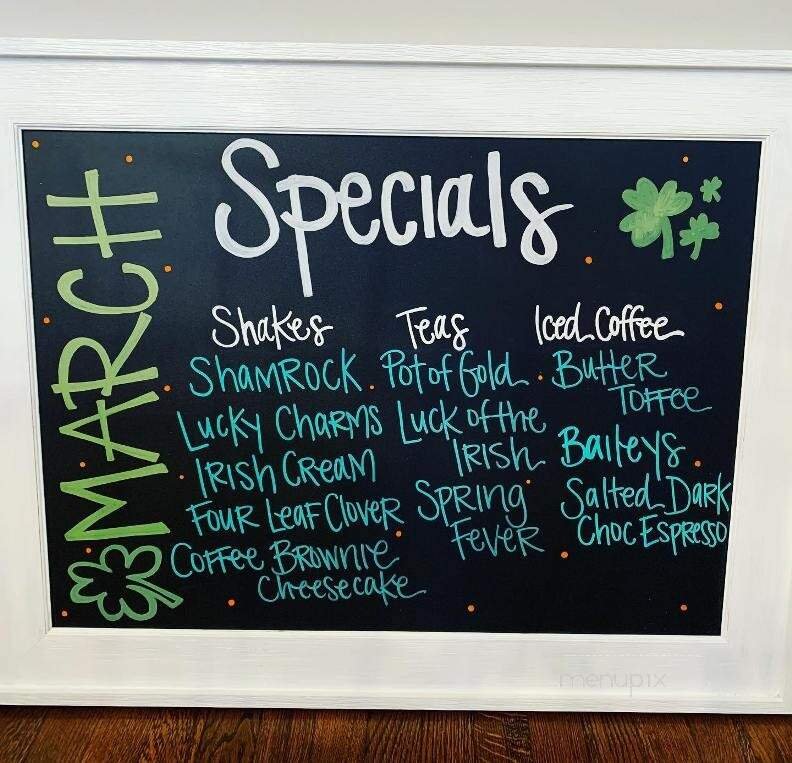 MARCH
Specials
Shakes
Shamrock
Lucky Charms
Irish Cream
Four Leaf Clover
Coffee Brownie
Cheesecake
Teas
Pot of Gold
Luck of the
Irish
Spring
Fever
Iced Coffee
Butter
Toffee
Baileys
Salted Dark
Choc Espresso
menupix